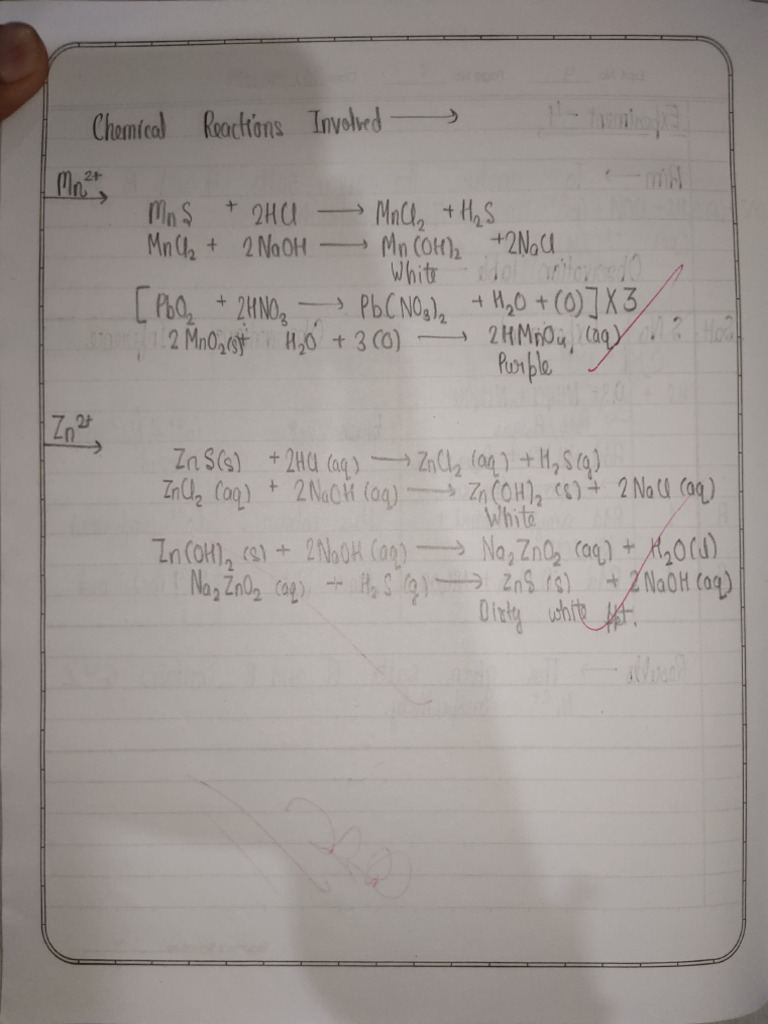 Chemical Reactions Involved ⟶
Mn²⁺
MnS + 2HCl ⟶ MnCl₂ + H₂S
MnCl₂ + 2NaOH ⟶ Mn(OH)₂ + 2NaCl
White
[PbO₂ + 2HNO₃ ⟶ Pb(NO₃)₂ + H₂O + (O)] X 3
2MnO₂(s) + H₂O + 3(O) ⟶ 2HMnO₄ (aq)
Purple
Zn²⁺
ZnS(s) + 2HCl (aq) ⟶ ZnCl₂ (aq) + H₂S(g)
ZnCl₂ (aq) + 2NaOH (aq) ⟶ Zn(OH)₂ (s) + 2NaCl (aq)
White
Zn(OH)₂ (s) + 2NaOH (aq) ⟶ Na₂ZnO₂ (aq) + H₂O(l)
Na₂ZnO₂ (aq) + H₂S (g) ⟶ ZnS (s) + 2NaOH (aq)
Dirty white ppt.